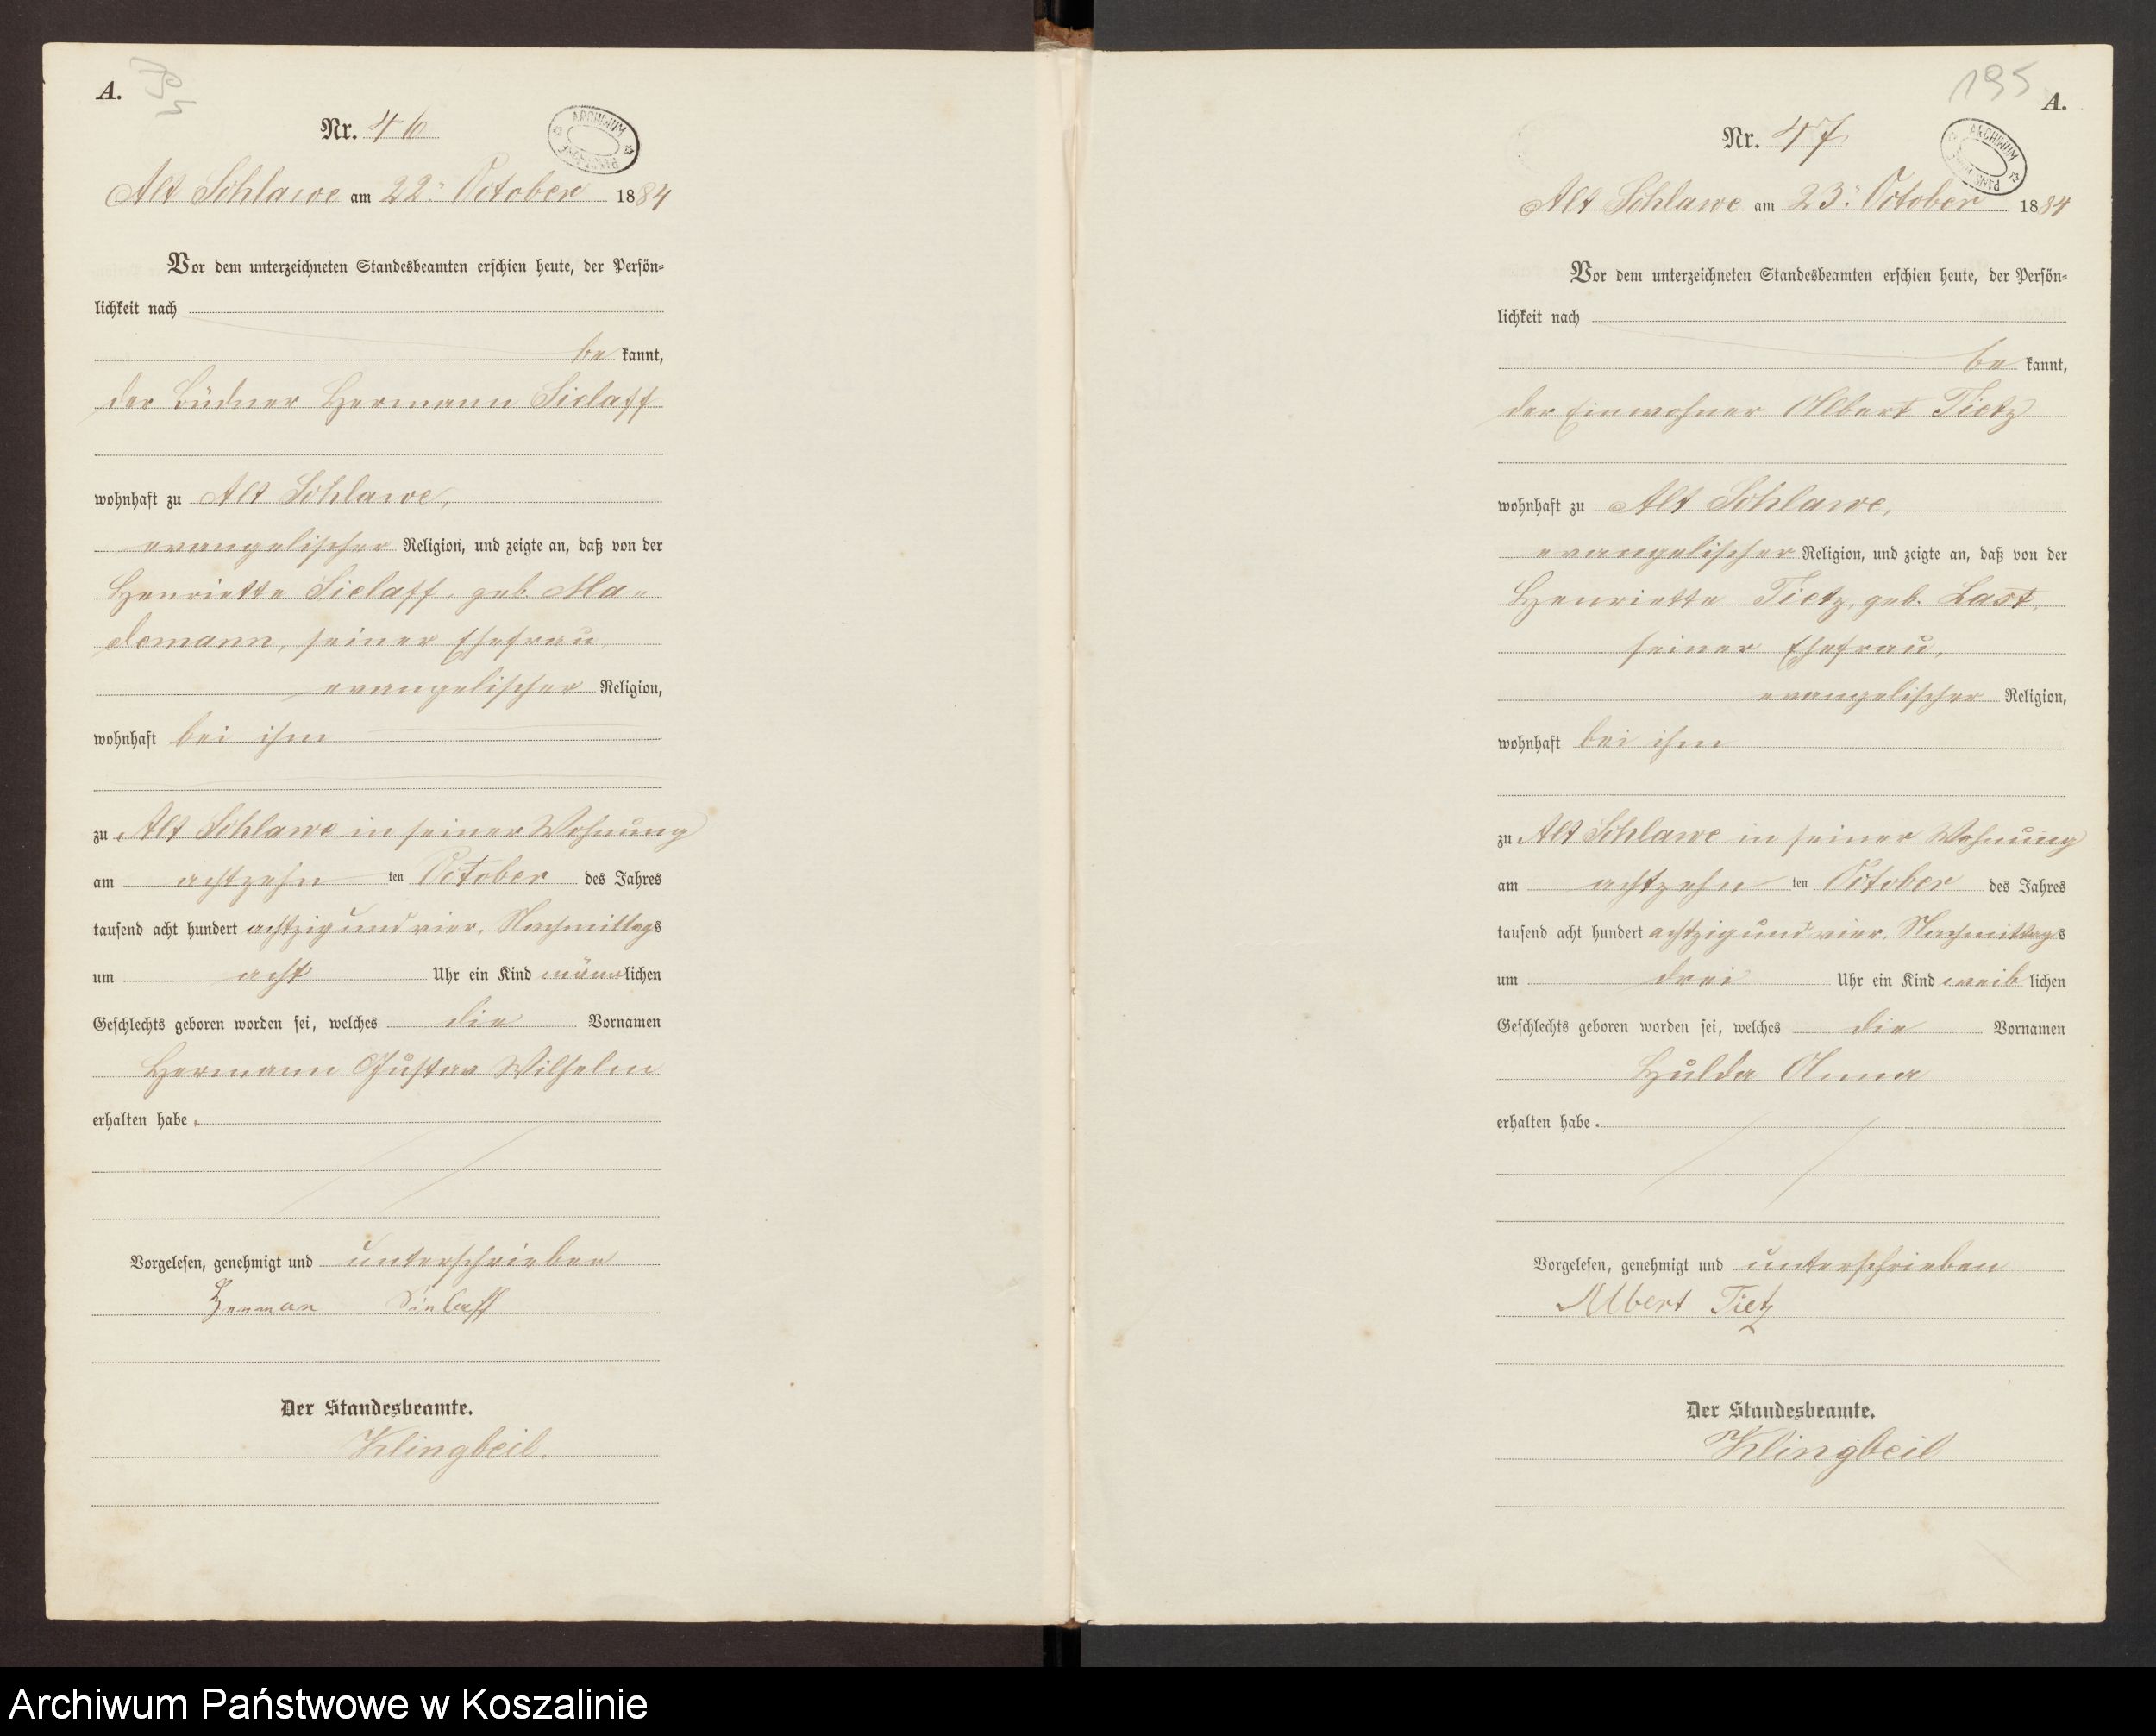 A.
Nr. 46
ARCHIWUM
Alt Schlawe am 22. October 1884
Vor dem unterzeichneten Standesbeamten erschien heute, der Persön=
lichkeit nach
be kannt,
der Büdner Hermann Sielaff
wohnhaft zu Alt Schlawe,
evangelischer Religion, und zeigte an, daß von der
Henriette Sielaff, geb. Ma=
demann, seiner Ehefrau,
evangelischer Religion,
wohnhaft bei ihm
zu Alt Schlawe in seiner Wohnung
am achtzehn ten October des Jahres
tausend acht hundert achtzig und vier, Nachmittags
um acht Uhr ein Kind männlichen
Geschlechts geboren worden sei, welches die Vornamen
Hermann Gustav Wilhelm
erhalten habe.
Vorgelesen, genehmigt und unterschrieben
Herman Sielaff
Der Standesbeamte.
Klingbeil.
195
A.
Nr. 47
ARCHIWUM
Alt Schlawe am 23. October 1884
Vor dem unterzeichneten Standesbeamten erschien heute, der Persön=
lichkeit nach
be kannt,
der Einwohner Albert Tietz
wohnhaft zu Alt Schlawe,
evangelischer Religion, und zeigte an, daß von der
Henriette Tietz, geb. Last,
seiner Ehefrau,
evangelischer Religion,
wohnhaft bei ihm
zu Alt Schlawe in seiner Wohnung
am achtzehn ten October des Jahres
tausend acht hundert achtzig und vier, Nachmittags
um drei Uhr ein Kind weib lichen
Geschlechts geboren worden sei, welches die Vornamen
Hulda Anna
erhalten habe.
Vorgelesen, genehmigt und unterschrieben
Albert Tietz
Der Standesbeamte.
Klingbeil
Archiwum Państwowe w Koszalinie